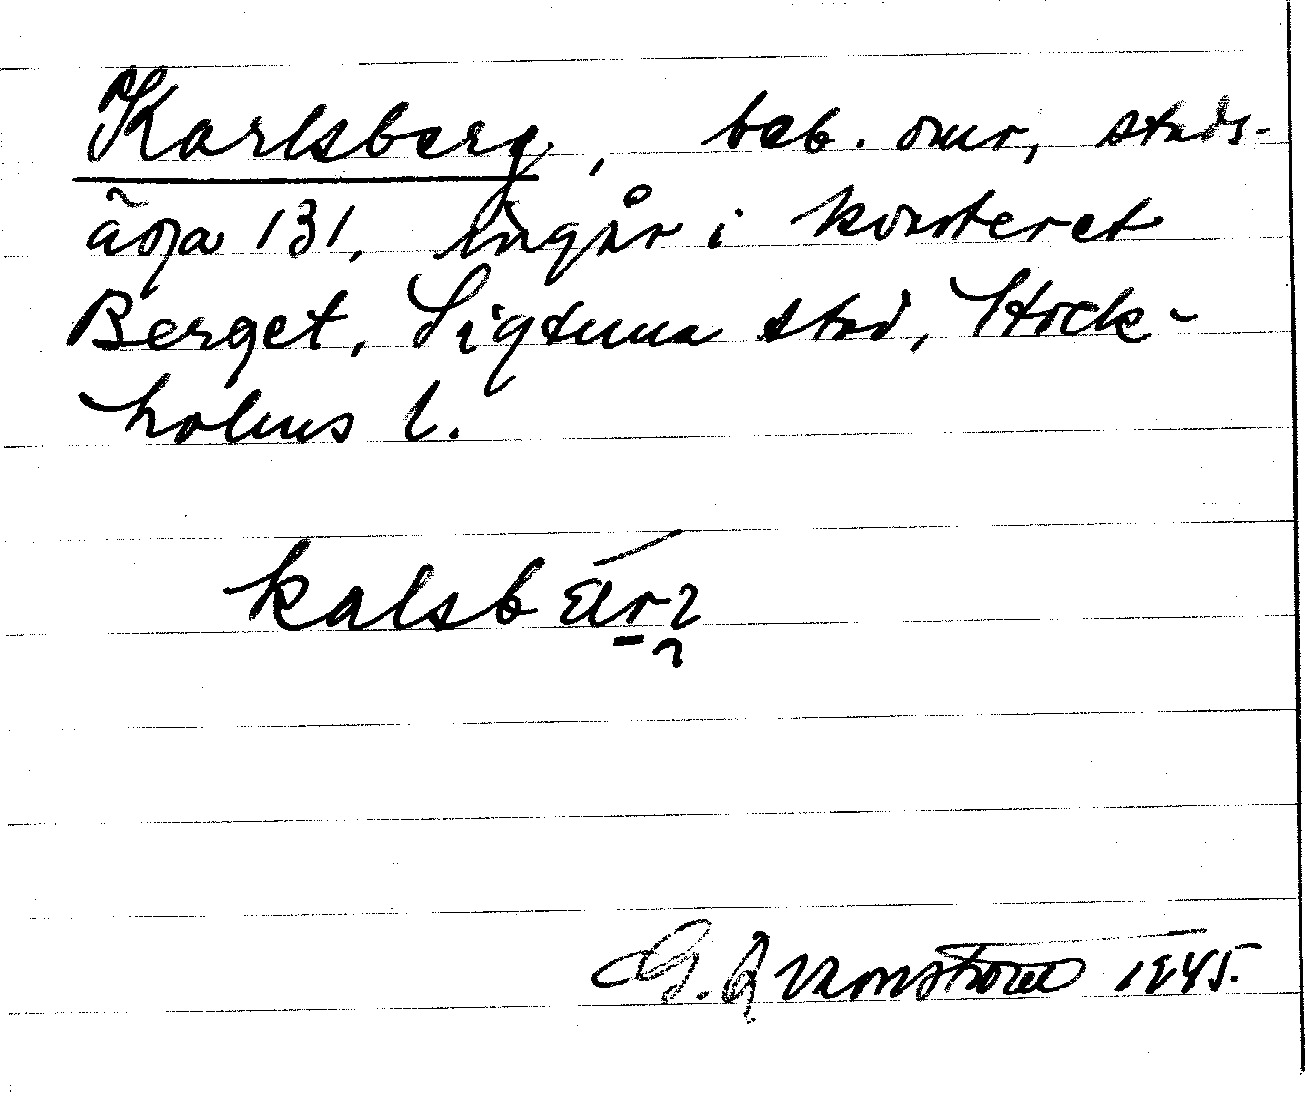 Karlsberg, beb. omr, stads-
äga 131, ingår i kvarteret
Berget, Sigtuna stad, Stock-
holms l.
kalsbär
G. Qvarnström 1945.